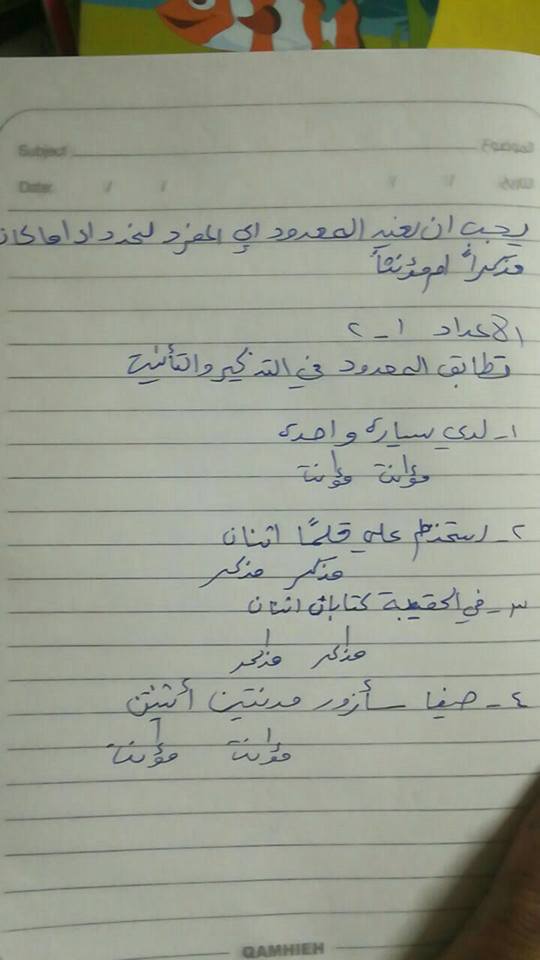 Subject: الموضوع
Date: / / / / التاريخ
يجب ان نعيد المعدود الى المفرد لنحدد اذا ما كان
مذكراً ام مؤنثاً
الاعداد ١ - ٢
تطابق المعدود في التذكير والتأنيث
١- لدي سيارة واحدة
مؤنث مؤنث
٢- استخدم علي قلمًا اثنان
مذكر مذكر
٣- في الحقيبة كتابان اثنان
مذكر مذكر
٤- صيفا سأزور مدينتين أثنتين
مؤنث مؤنث
QAMHIEH